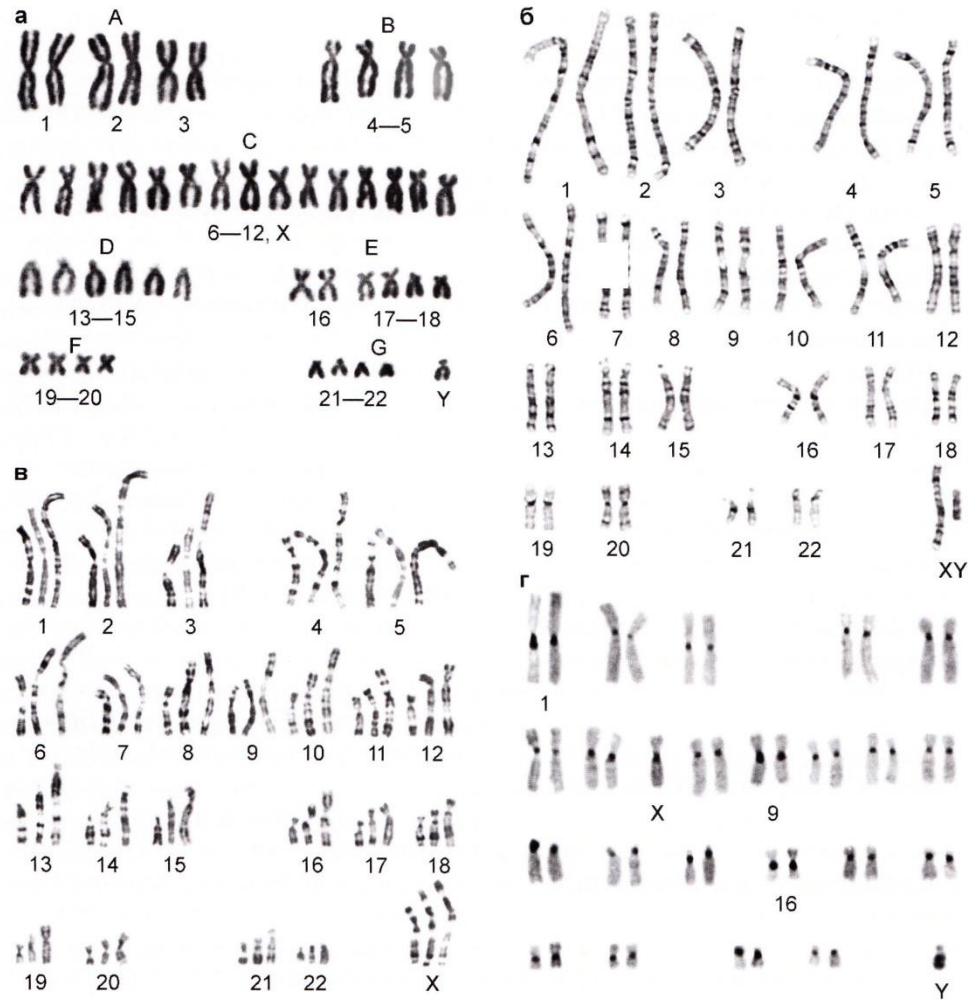 а
A
B
1 2 3
4—5
C
6—12, X
D
E
13—15
16 17—18
F
G
19—20
21—22 Y
б
1 2 3 4 5
6 7 8 9 10 11 12
13 14 15 16 17 18
19 20 21 22
XY
в
1 2 3 4 5
6 7 8 9 10 11 12
13 14 15 16 17 18
19 20 21 22 X
г
1
X 9
16
Y